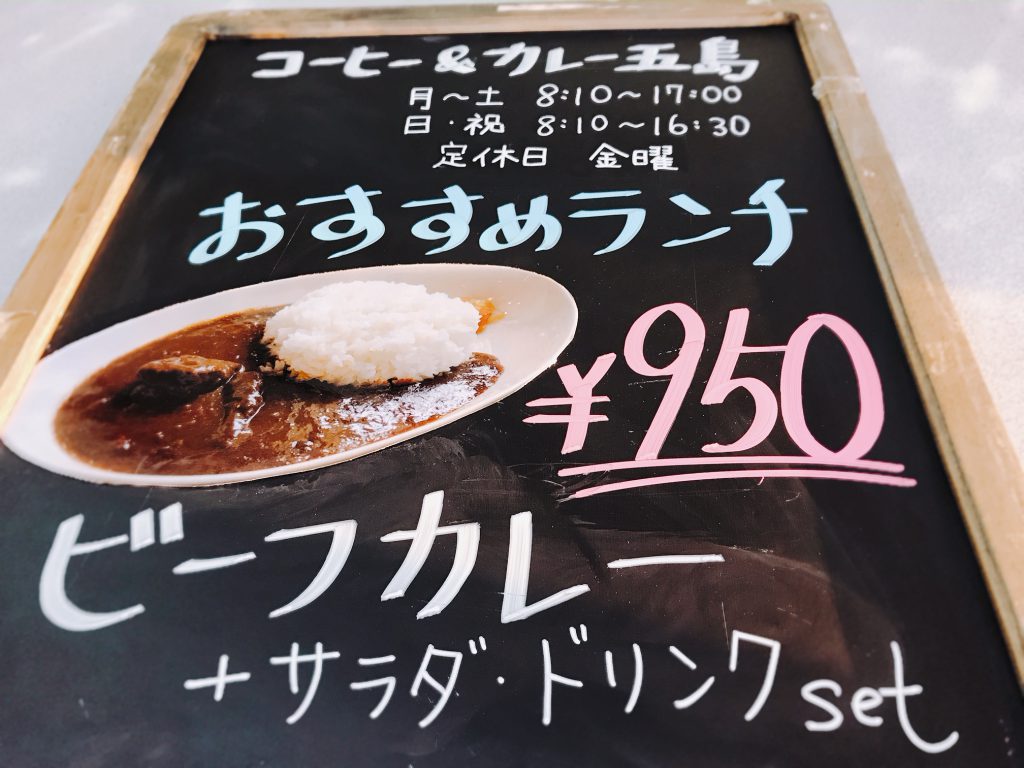 コーヒー&カレー五島
月〜土 8:10〜17:00
日・祝 8:10〜16:30
定休日 金曜
おすすめランチ
¥950
ビーフカレー
+サラダ・ドリンクset